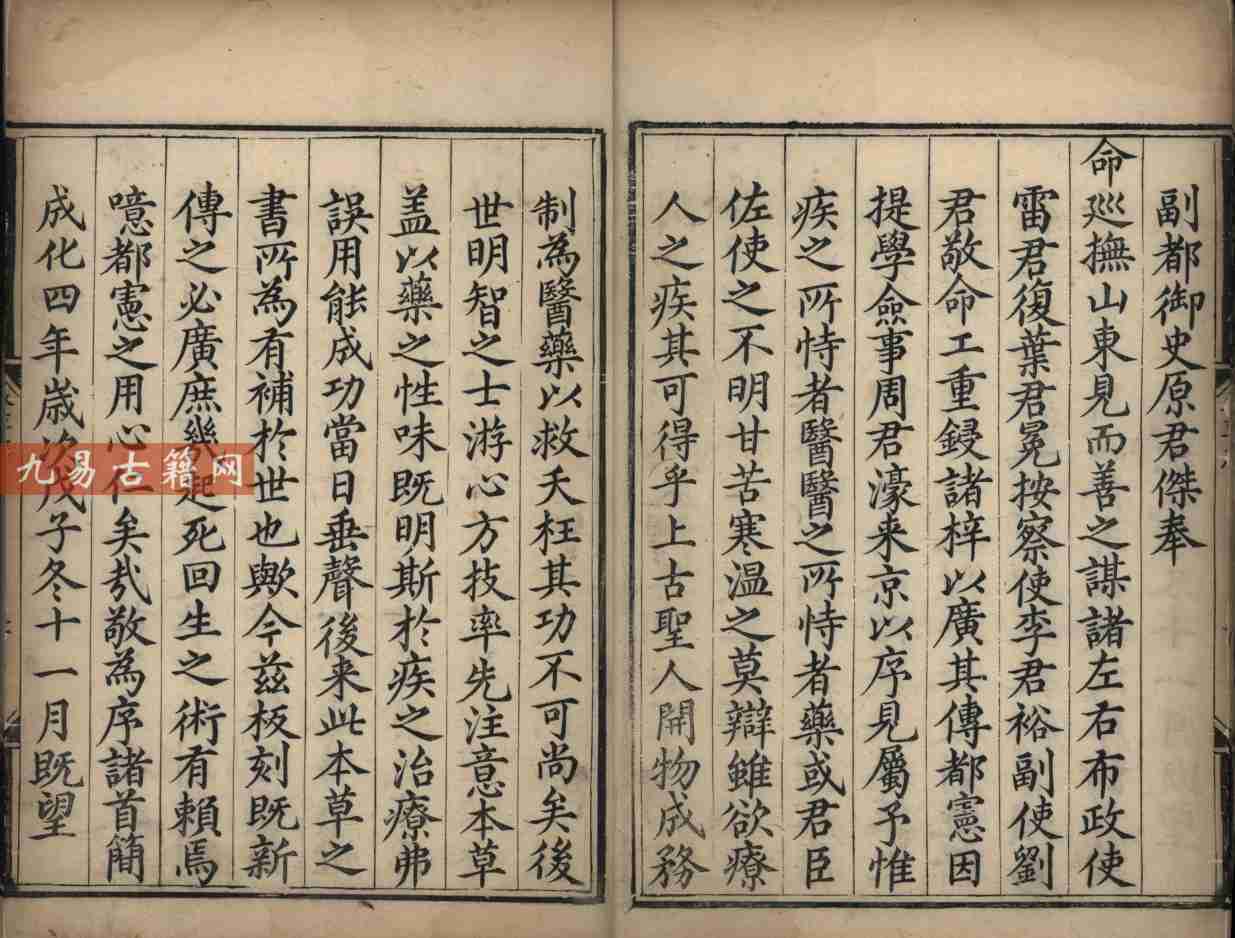 副都御史原君傑奉
命廵撫山東見而善之謀諸左右布政使
雷君復葉君冕按察使李君裕副使劉
君敬命工重鋟諸梓以廣其傳都憲因
提學僉事周君濠来京以序見屬予惟
疾之所恃者醫醫之所恃者藥或君臣
佐使之不明甘苦寒溫之莫辯雖欲療
人之疾其可得乎上古聖人開物成務
制為醫藥以救夭枉其功不可尚矣後
世明智之士游心方技率先注意本草
盖以藥之性味既明斯於疾之治療弗
誤用能成功當日垂聲後来此本草之
書所為有補於世也歟今茲板刻既新
傳之必廣庶幾起死回生之術有賴焉
噫都憲之用心仁矣㢤敬為序諸首簡
成化四年歲次戊子冬十一月既望
九易古籍网